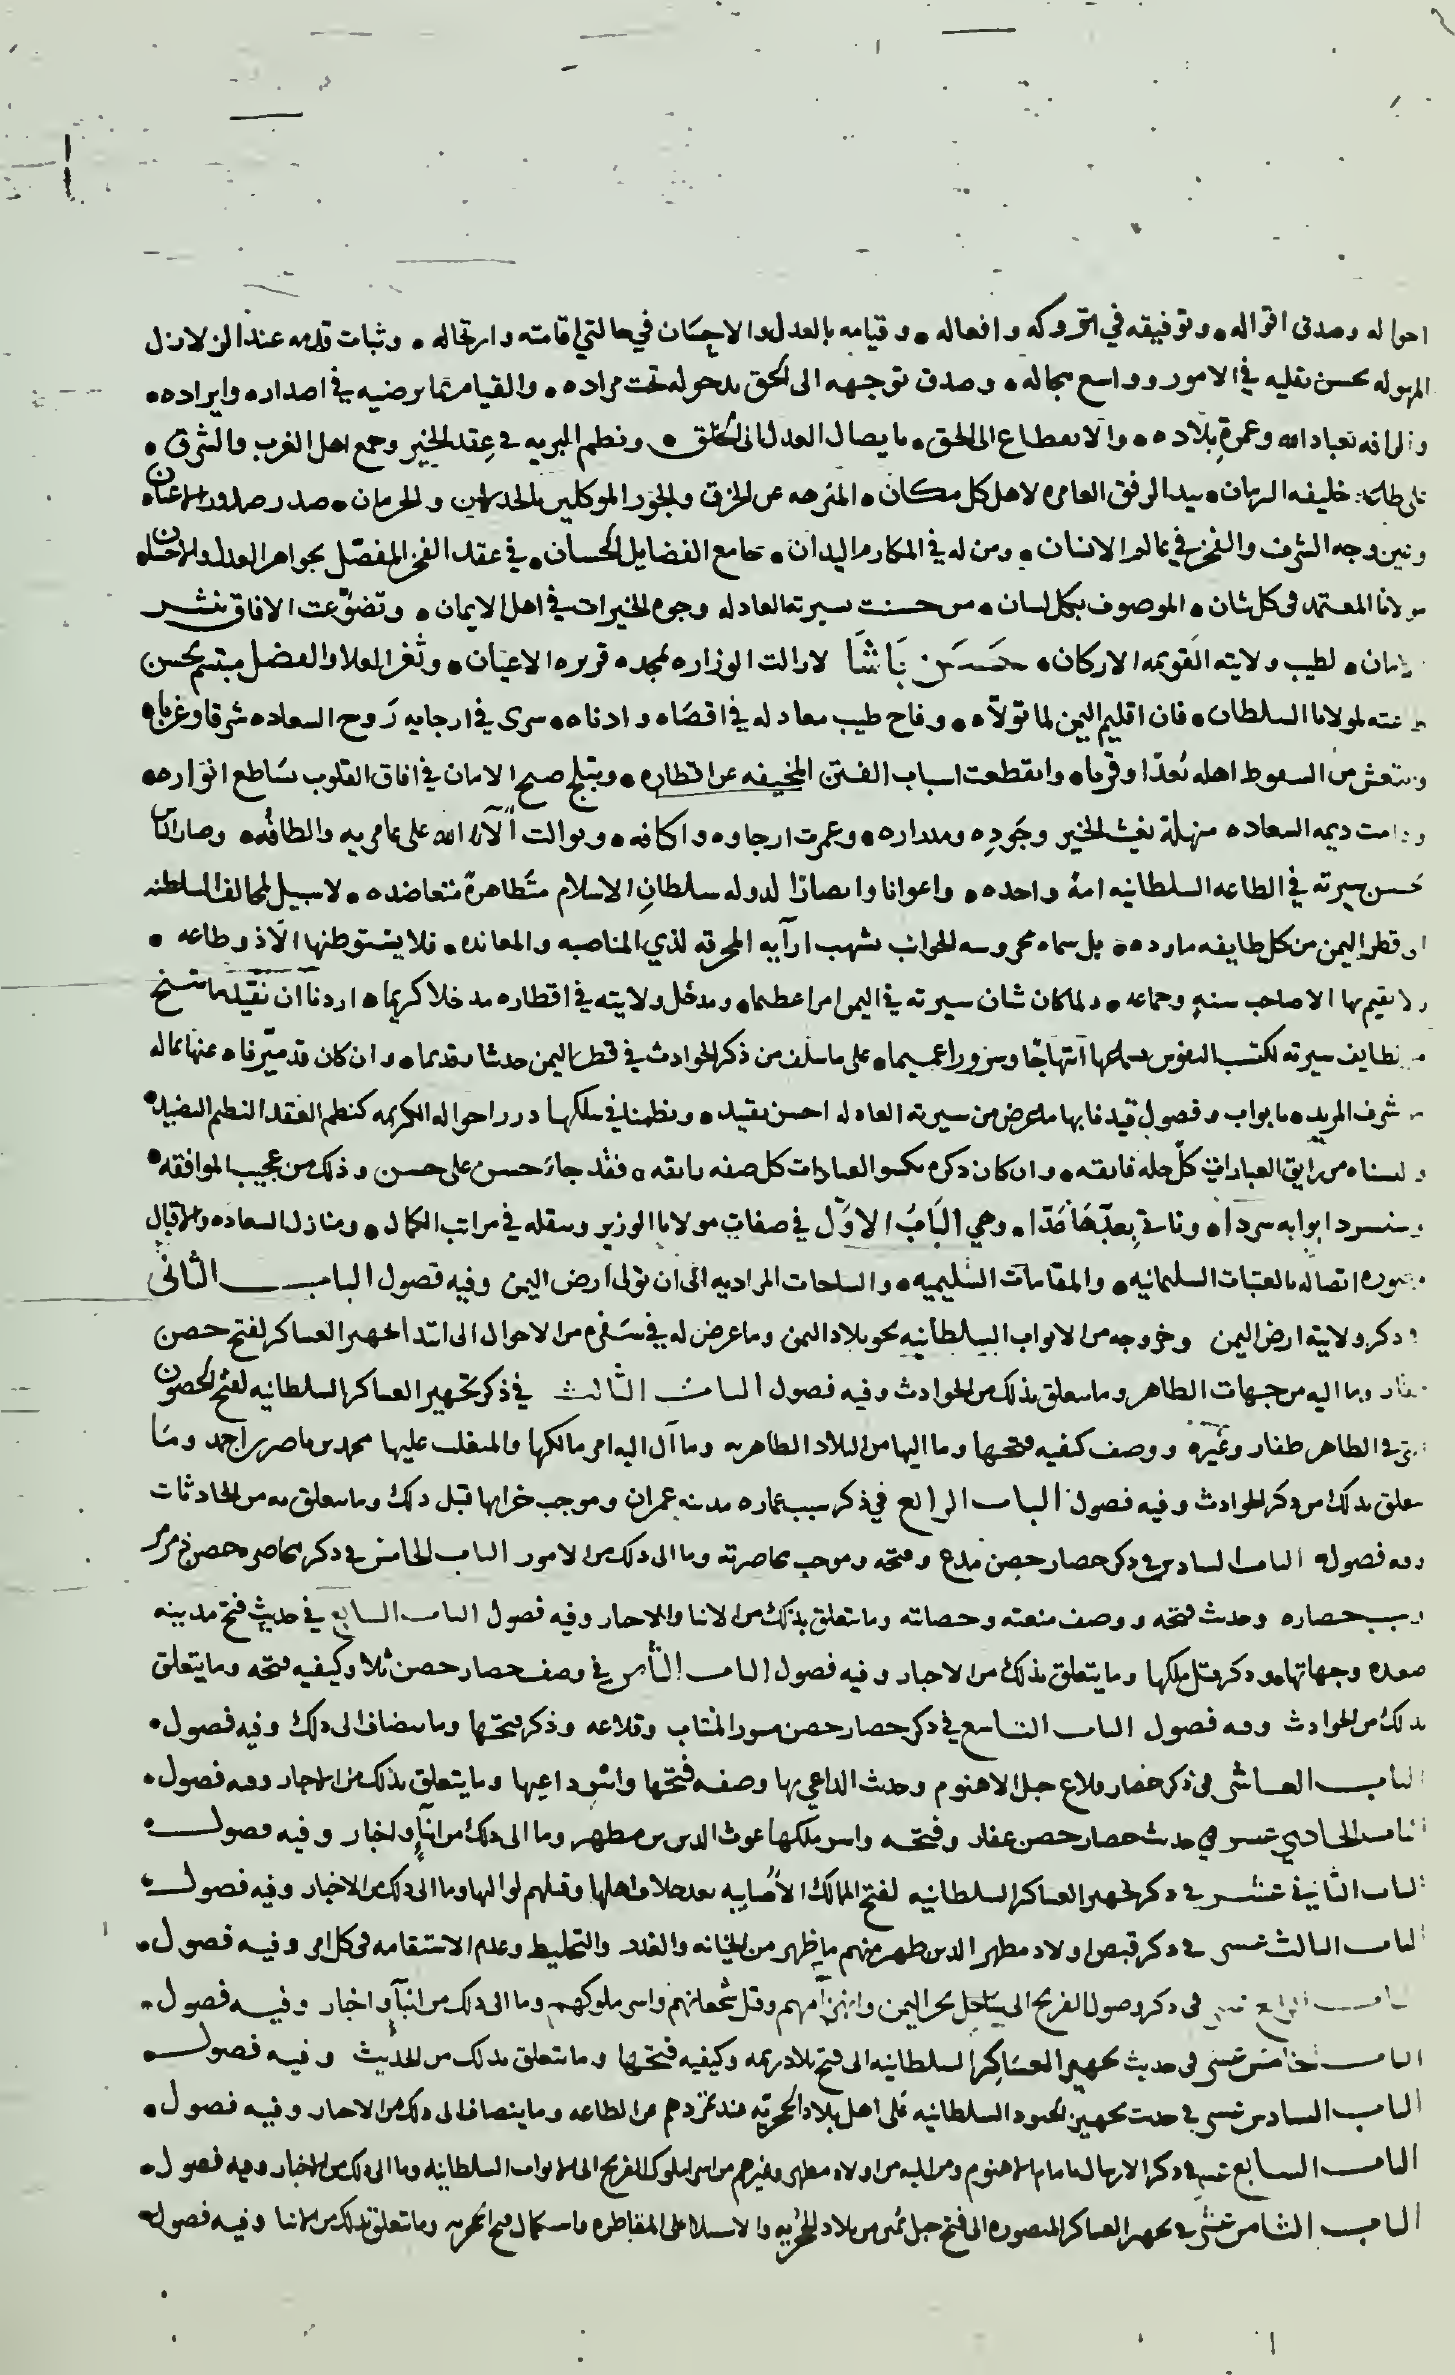 احواله وصدق اقواله • وتوفيقه في اتحروكه وافعاله • وقيامه بالعدل والاحسان في حالتي اقامته وارتحاله • وثبات قدمه عند الزلازل
المهوله بحسن تقلبه في الامور وواسع مجاله • وصدق توجهه الى الحق بدخوله تحت مراده • والقيام بما يرضيه في اصداره وايراده •
بعباد الله وعمرة بلاده • والانقطاع الى الحق • بايصال العدل الى الخلق • ونظم البريه في عقد الخير وجمع اهل الغرب والشرق •
خليفه الزمان • بيد الرفق العامره لاهل كل مكان • المنزحه عن الخرق والجور الموكلين بالخدلان والحرمان • صدر صدور الاعيان
وعين وجه الشرف والفخر في عالم الانسان • ومن له في المكارم اليدان • جامع الفضايل الحسان • في عقد الفخر المفصل بجواهر العدل والاحسان
مولانا المعتمد في كل شان • الموصوف بكل لسان • من حسنت بسيرته العادله وجوه الخيرات في اهل الايمان • وتضوعت الافاق بنشر
لطيب ولايته القويمه الاركان • حسن باشا لا زالت الوزاره بمجده قريره الاعيان • وثغر العلا والفضل مبتسم بحسن
لمولانا السلطان • فان اقليم اليمن لما تولاه • وفاح طيب معادله في اقصاه وادناه • سرى في ارجايه روح السعاده شرقا وغربا •
وينتعش من السقوط اهله بعدا وقربا • وانقطعت اسباب الفتن المخيفه عن اقطاره • وتبلج صبح الامان في افاق القلوب بساطع انواره •
ودامت ديمه السعاده منهلة بغيث الخير وجوده ومدراره • وعمرت ارجاوه واكنافه • وتوالت آلآء الله على عامريه والطافه • وصار الناس
بحسن سيرته في الطاعه السلطانيه امة واحده • واعوانا وانصارا لدوله سلطان الاسلام متظاهرة متعاضده • لا سبيل لمخالف السلطنه
قطر اليمن من كل طايفه مارده • بل سماه محروسه الجوانب بشهب ارآيه المحرقه لذي المناصبه والمعانده • فلا يستوطنها الا ذو طاعه •
ولا يقيم بها الا صاحب سنه وجماعه • ولما كان شان سيرته في اليمن امرا عظيما • ومدخل ولايته في اقطاره مدخلا كريما • اردنا ان نقيد ما سنح
من لطايف سيرته لكتسب النفوس بسماعها ابتهاجا وسرورا عميما • على ما سلف من ذكر الحوادث في قطر اليمن حديثا وقديما • وان كان قد ميزنا • عنها بماله
من شرف المزيد • بابواب وفصول قيدنا بها ما عرض من سيرته العادله احسن تقييد • ونظمنا في سلكها درر احواله الكريمه كنظم العقد النظيم النضيد •
والبسناه من رايق العبارات كل حله فايقه • وان كان ذكره يكسو العبارات كل صفه رايقه • فقد جاء حسن على حسن وذلك من عجيب الموافقه •
وسنسرد ابوابه سردا • وناتي بعدها عدا • وهي الباب الاول في صفات مولانا الوزير وتنقله في مراتب الكمال • ومنازل السعاده والاقبال
وصوره اتصاله بالعتبات السليمانيه • والمقامات السليميه • والساحات المراديه الى ان تولى ارض اليمن وفيه فصول الباب الثاني
في ذكر ولايته ارض اليمن وخروجه من الابواب السلطانيه نحو بلاد اليمن وما عرض له في سفره من الاحوال الى ابتدا تجهيز العساكر لفتح حصن
وما اليه من جهات الظاهر وما يتعلق بذلك من الحوادث وفيه فصول الباب الثالث في ذكر تجهيز العساكر السلطانيه لفتح الحصون
التي في الظاهر ظفار وغيره ووصف كيفيه فتحها وما اليها من البلاد الظاهريه وما آل اليه امر مالكها والمتغلب عليها محمد بن ناصر بن احمد وما
يتعلق بذلك من ذكر الحوادث وفيه فصول الباب الرابع في ذكر سبب عماره مدينه عمران وموجب خرابها قبل ذلك وما يتعلق به من الحادثات
وفيه فصول الباب السادس في ذكر حصار حصن مدع وفتحه وموجب محاصرته وما الى ذلك من الامور الباب الخامس في ذكر محاصره حصن ذي مرمر
وسبب حصاره وحديث فتحه ووصف منعته وحصانته وما يتعلق بذلك من الانبا والاخبار وفيه فصول الباب السابع في حديث فتح مدينه
صعده وجهاتها وذكر قتل ملكها وما يتعلق بذلك من الاخبار وفيه فصول الباب الثامن في وصف حصار حصن ثلا وكيفيه فتحه وما يتعلق
بذلك من الحوادث وفيه فصول الباب التاسع في ذكر حصار حصن مسور المنتاب وقلاعه وذكر فتحها وما ينضاف الى ذلك وفيه فصول •
الباب العاشر في ذكر حصار قلاع جبل الاهنوم وحديث الداعي بها وصفه فتحها واسر داعيها وما يتعلق بذلك من الاخبار وفيه فصول •
الباب الحادي عشر في حديث حصار حصن عفار وفتحه واسر ملكها غوث الدين بن مطهر وما الى ذلك من انبآء واخبار وفيه فصول •
الباب الثاني عشر في ذكر تجهيز العساكر السلطانيه لفتح الممالك الأصابيه بعد خلاف اهلها وقتلهم لواليها وما الى ذلك من الاخبار وفيه فصول •
الباب الثالث عشر في ذكر قبض اولاد مطهر الذين ظهر منهم ما ظهر من الخيانه والغدر والتخليط وعدم الاستقامه في كل امر وفيه فصول •
الباب الرابع عشر في ذكر وصول الفرنج الى ساحل بحر اليمن وانهزامهم وقتل شجعانهم واسر ملوكهم وما الى ذلك من انبآء واخبار وفيه فصول •
الباب الخامس عشر في حديث تجهيز العساكر السلطانيه الى فتح بلاد ريمه وكيفيه فتحها وما يتعلق بذلك من الحديث وفيه فصول •
الباب السادس عشر في حديث تجهيز الجنود السلطانيه على اهل بلاد الحجريه عند تمردهم عن الطاعه وما ينضاف الى ذلك من الاخبار وفيه فصول •
الباب السابع عشر في ذكر الارسال بامام الاهنوم ومن اليه من اولاد مطهر وغيرهم من اسرا ملوك الفرنج الى الابواب السلطانيه وما الى ذلك من الاخبار وفيه فصول •
الباب الثامن عشر في تجهيز العساكر المنصوره الى فتح جبل من بلاد الحجريه والاستيلا على المقاطره واستكمال فتح الحجريه وما يتعلق بذلك من الانبا وفيه فصول •